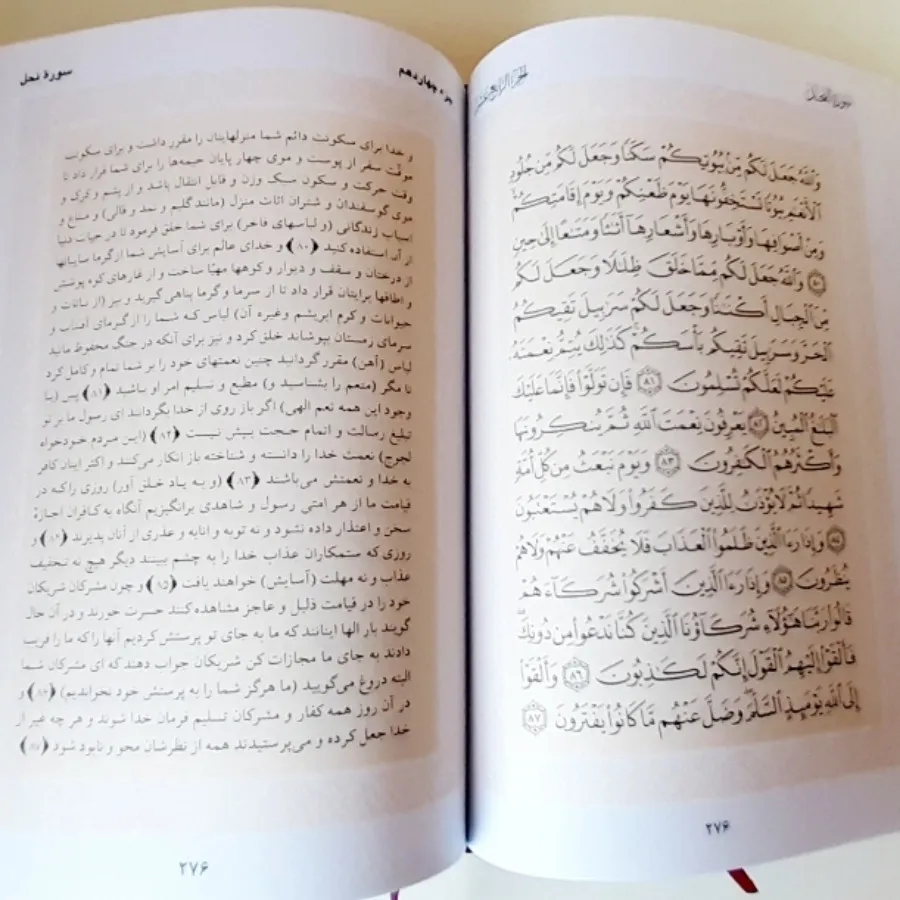 سورة النحل
الجزء الرابع عشر
وَاللَّهُ جَعَلَ لَكُم مِّنۢ بُيُوتِكُمْ سَكَنًا وَجَعَلَ لَكُم مِّن جُلُودِ
الْأَنْعَامِ بُيُوتًا تَسْتَخِفُّونَهَا يَوْمَ ظَعْنِكُمْ وَيَوْمَ إِقَامَتِكُمْ
وَمِنْ أَصْوَافِهَا وَأَوْبَارِهَا وَأَشْعَارِهَا أَثَاثًا وَمَتَاعًا إِلَىٰ حِينٍ
﴿٨٠﴾ وَاللَّهُ جَعَلَ لَكُم مِّمَّا خَلَقَ ظِلَالًا وَجَعَلَ لَكُم
مِّنَ الْجِبَالِ أَكْنَانًا وَجَعَلَ لَكُمْ سَرَابِيلَ تَقِيكُمُ
الْحَرَّ وَسَرَابِيلَ تَقِيكُم بَأْسَكُمْ كَذَٰلِكَ يُتِمُّ نِعْمَتَهُ
عَلَيْكُمْ لَعَلَّكُمْ تُسْلِمُونَ ﴿٨١﴾ فَإِن تَوَلَّوْا فَإِنَّمَا عَلَيْكَ
الْبَلَاغُ الْمُبِينُ ﴿٨٢﴾ يَعْرِفُونَ نِعْمَتَ اللَّهِ ثُمَّ يُنكِرُونَهَا
وَأَكْثَرُهُمُ الْكَافِرُونَ ﴿٨٣﴾ وَيَوْمَ نَبْعَثُ مِن كُلِّ أُمَّةٍ
شَهِيدًا ثُمَّ لَا يُؤْذَنُ لِلَّذِينَ كَفَرُوا وَلَا هُمْ يُسْتَعْتَبُونَ
﴿٨٤﴾ وَإِذَا رَءَا الَّذِينَ ظَلَمُوا الْعَذَابَ فَلَا يُخَفَّفُ عَنْهُمْ وَلَا هُمْ
يُنظَرُونَ ﴿٨٥﴾ وَإِذَا رَءَا الَّذِينَ أَشْرَكُوا شُرَكَاءَهُمْ
قَالُوا رَبَّنَا هَٰؤُلَاءِ شُرَكَاؤُنَا الَّذِينَ كُنَّا نَدْعُوا مِن دُونِكَ
فَأَلْقَوْا إِلَيْهِمُ الْقَوْلَ إِنَّكُمْ لَكَاذِبُونَ ﴿٨٦﴾ وَأَلْقَوْا
إِلَى اللَّهِ يَوْمَئِذٍ السَّلَمَ وَضَلَّ عَنْهُم مَّا كَانُوا يَفْتَرُونَ ﴿٨٧﴾
۲۷۶
جزء چهاردهم
سورهٔ نحل
و خدا برای سکونت دائم شما منزلهایتان را مقرر داشت و برای سکونت
موقّت سفر از پوست و موی چهار پایان خیمه‌ها را برای شما قرار داد تا
وقت حرکت و سکون سبک وزن و قابل انتقال باشد و از پشم و کرک و
موی گوسفندان و شتران اثاث منزل (مانند گلیم و نمد و قالی) و متاع و
اسباب زندگانی (و لباسهای فاخر) برای شما خلق فرمود تا در حیات دنیا
از آن استفاده کنید ﴿۸۰﴾ و خدای عالم برای آسایش شما از گرما سایبانها
از درختان و سقف و دیوار و کوهها مهیّا ساخت و از غارهای کوه پوشش
و اطاقها برایتان قرار داد تا از سرما و گرما پناهی گیرید و نیز (از نباتات و
حیوانات و کرم ابریشم وغیره آن) لباس که شما را از گرمای آفتاب و
سرمای زمستان بپوشاند خلق کرد و نیز برای آنکه در جنگ محفوظ مانید
لباس (آهن) مقرر گردانید چنین نعمتهای خود را بر شما تمام و کامل کرد
تا مگر (منعم را بشناسید و) مطیع و تسلیم امر او باشید ﴿۸۱﴾ پس (با
وجود این همه نعم الهی) اگر باز روی از خدا بگردانند ای رسول ما بر تو
تبلیغ رسالت و اتمام حجت بیش نیست ﴿۸۲﴾ (این مردم خودخواه
لجوج) نعمت خدا را دانسته و شناخته باز انکار می‌کنند و اکثر اینان کافر
به خدا و نعمتش می‌باشند ﴿۸۳﴾ (و به یاد خلق آور) روزی را که در
قیامت ما از هر امتی رسول و شاهدی برانگیزیم آنگاه به کافران اجازهٔ
سخن و اعتذار داده نشود و نه توبه و انابه و عذری از آنان پذیرند ﴿۸۴﴾ و
روزی که ستمکاران عذاب خدا را به چشم ببینند دیگر هیچ نه تخفیف
عذاب و نه مهلت (آسایش) خواهند یافت ﴿۸۵﴾ و چون مشرکان شریکان
خود را در قیامت ذلیل و عاجز مشاهده کنند حسرت خورند و در آن حال
گویند بار الها اینانند که ما به جای تو پرستش کردیم آنها را که ما را فریب
دادند به جای ما مجازات کن شریکان جواب دهند که ای مشرکان شما
البته دروغ می‌گویید (ما هرگز شما را به پرستش خود نخواندیم) ﴿۸۶﴾ و
در آن روز همه کفار و مشرکان تسلیم فرمان خدا شوند و هر چه غیر از
خدا جعل کرده و می‌پرستیدند همه از نظرشان محو و نابود شود ﴿۸۷﴾
۲۷۶